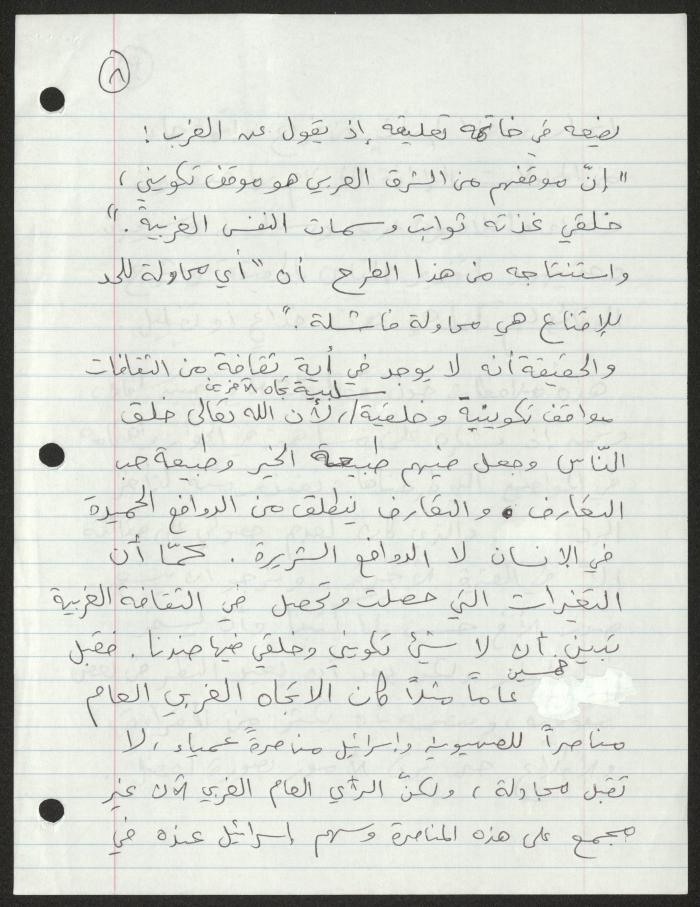 ٨
يضيعه في خاتمة تعليقه إذ يقول عن الغرب :
"إنّ موقفهم من الشرق العربي هو موقف تكويني ،
خلقي غذته ثوابت وسمات النفس الغربية ."
واستنتاجه من هذا الطرح أن "أي محاولة للحد
للإقناع هي محاولة فاشلة ."
والحقيقة أنه لا يوجد في أية ثقافة من الثقافات
سلبية تجاه الآخرين
مواقف تكوينية وخلقية /، لأن الله تعالى خلق
النّاس وجعل منهم طبيعة الخير وطبيعة حب
التعارف . والتعارف ينطلق من الدوافع الحميدة
في الإنسان لا الدوافع الشريرة . كمّا أن
التغيرات التي حصلت وتحصل في الثقافة الغربية
تبين أن لا شيئ تكويني وخلقي فيها ضدنا . فقبل
خمسين
عاماً مثلاً كان الاتجاه الغربي العام
مناصراً للصهيونية وإسرائيل مناصرةً عمياء ، لا
تقبل مجاولة ، ولكنّ الرأي العام الغربي الآن غير
مجمع على هذه المناصرة وسهم إسرائيل عنده في